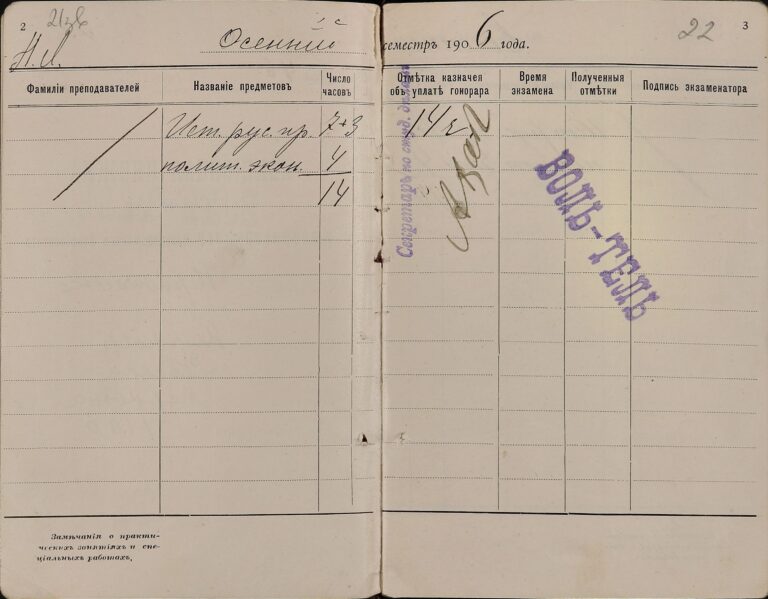 2
Н. Л.
Осенній
Фамиліи преподавателей
Названіе предметовъ
Число часовъ
Ист. рус. пр. 7+3
полит. экон. 4
14
Замѣчанія о практи-
ческихъ занятіяхъ и спе-
ціальныхъ работахъ,
22
3
семестръ 1906 года.
Отмѣтка казначея объ уплатѣ гонорара
Время экзамена
Полученныя отмѣтки
Подпись экзаменатора
14
Секретарь по студ.
ВОЛЬ-ТЕЛЬ